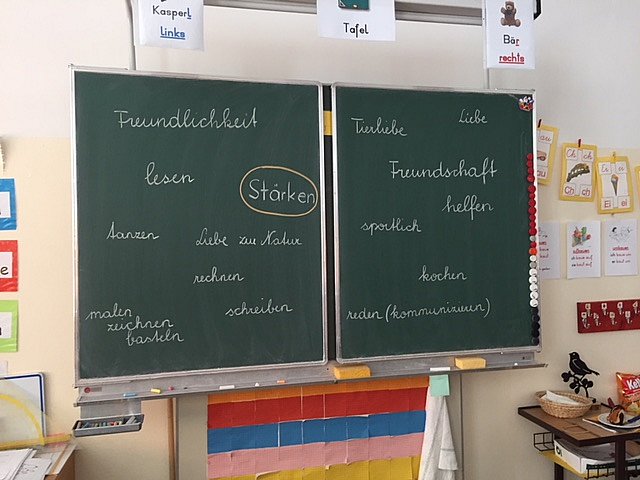 Kasperl
Links
Tafel
Bär
rechts
Freundlichkeit
lesen
Stärken
tanzen
Liebe zur Natur
rechnen
malen
zeichnen
basteln
schreiben
Tierliebe
Liebe
Freundschaft
helfen
sportlich
kochen
reden (kommunizieren)
Ch ch
Ch ch
Ei ei
Ei ei